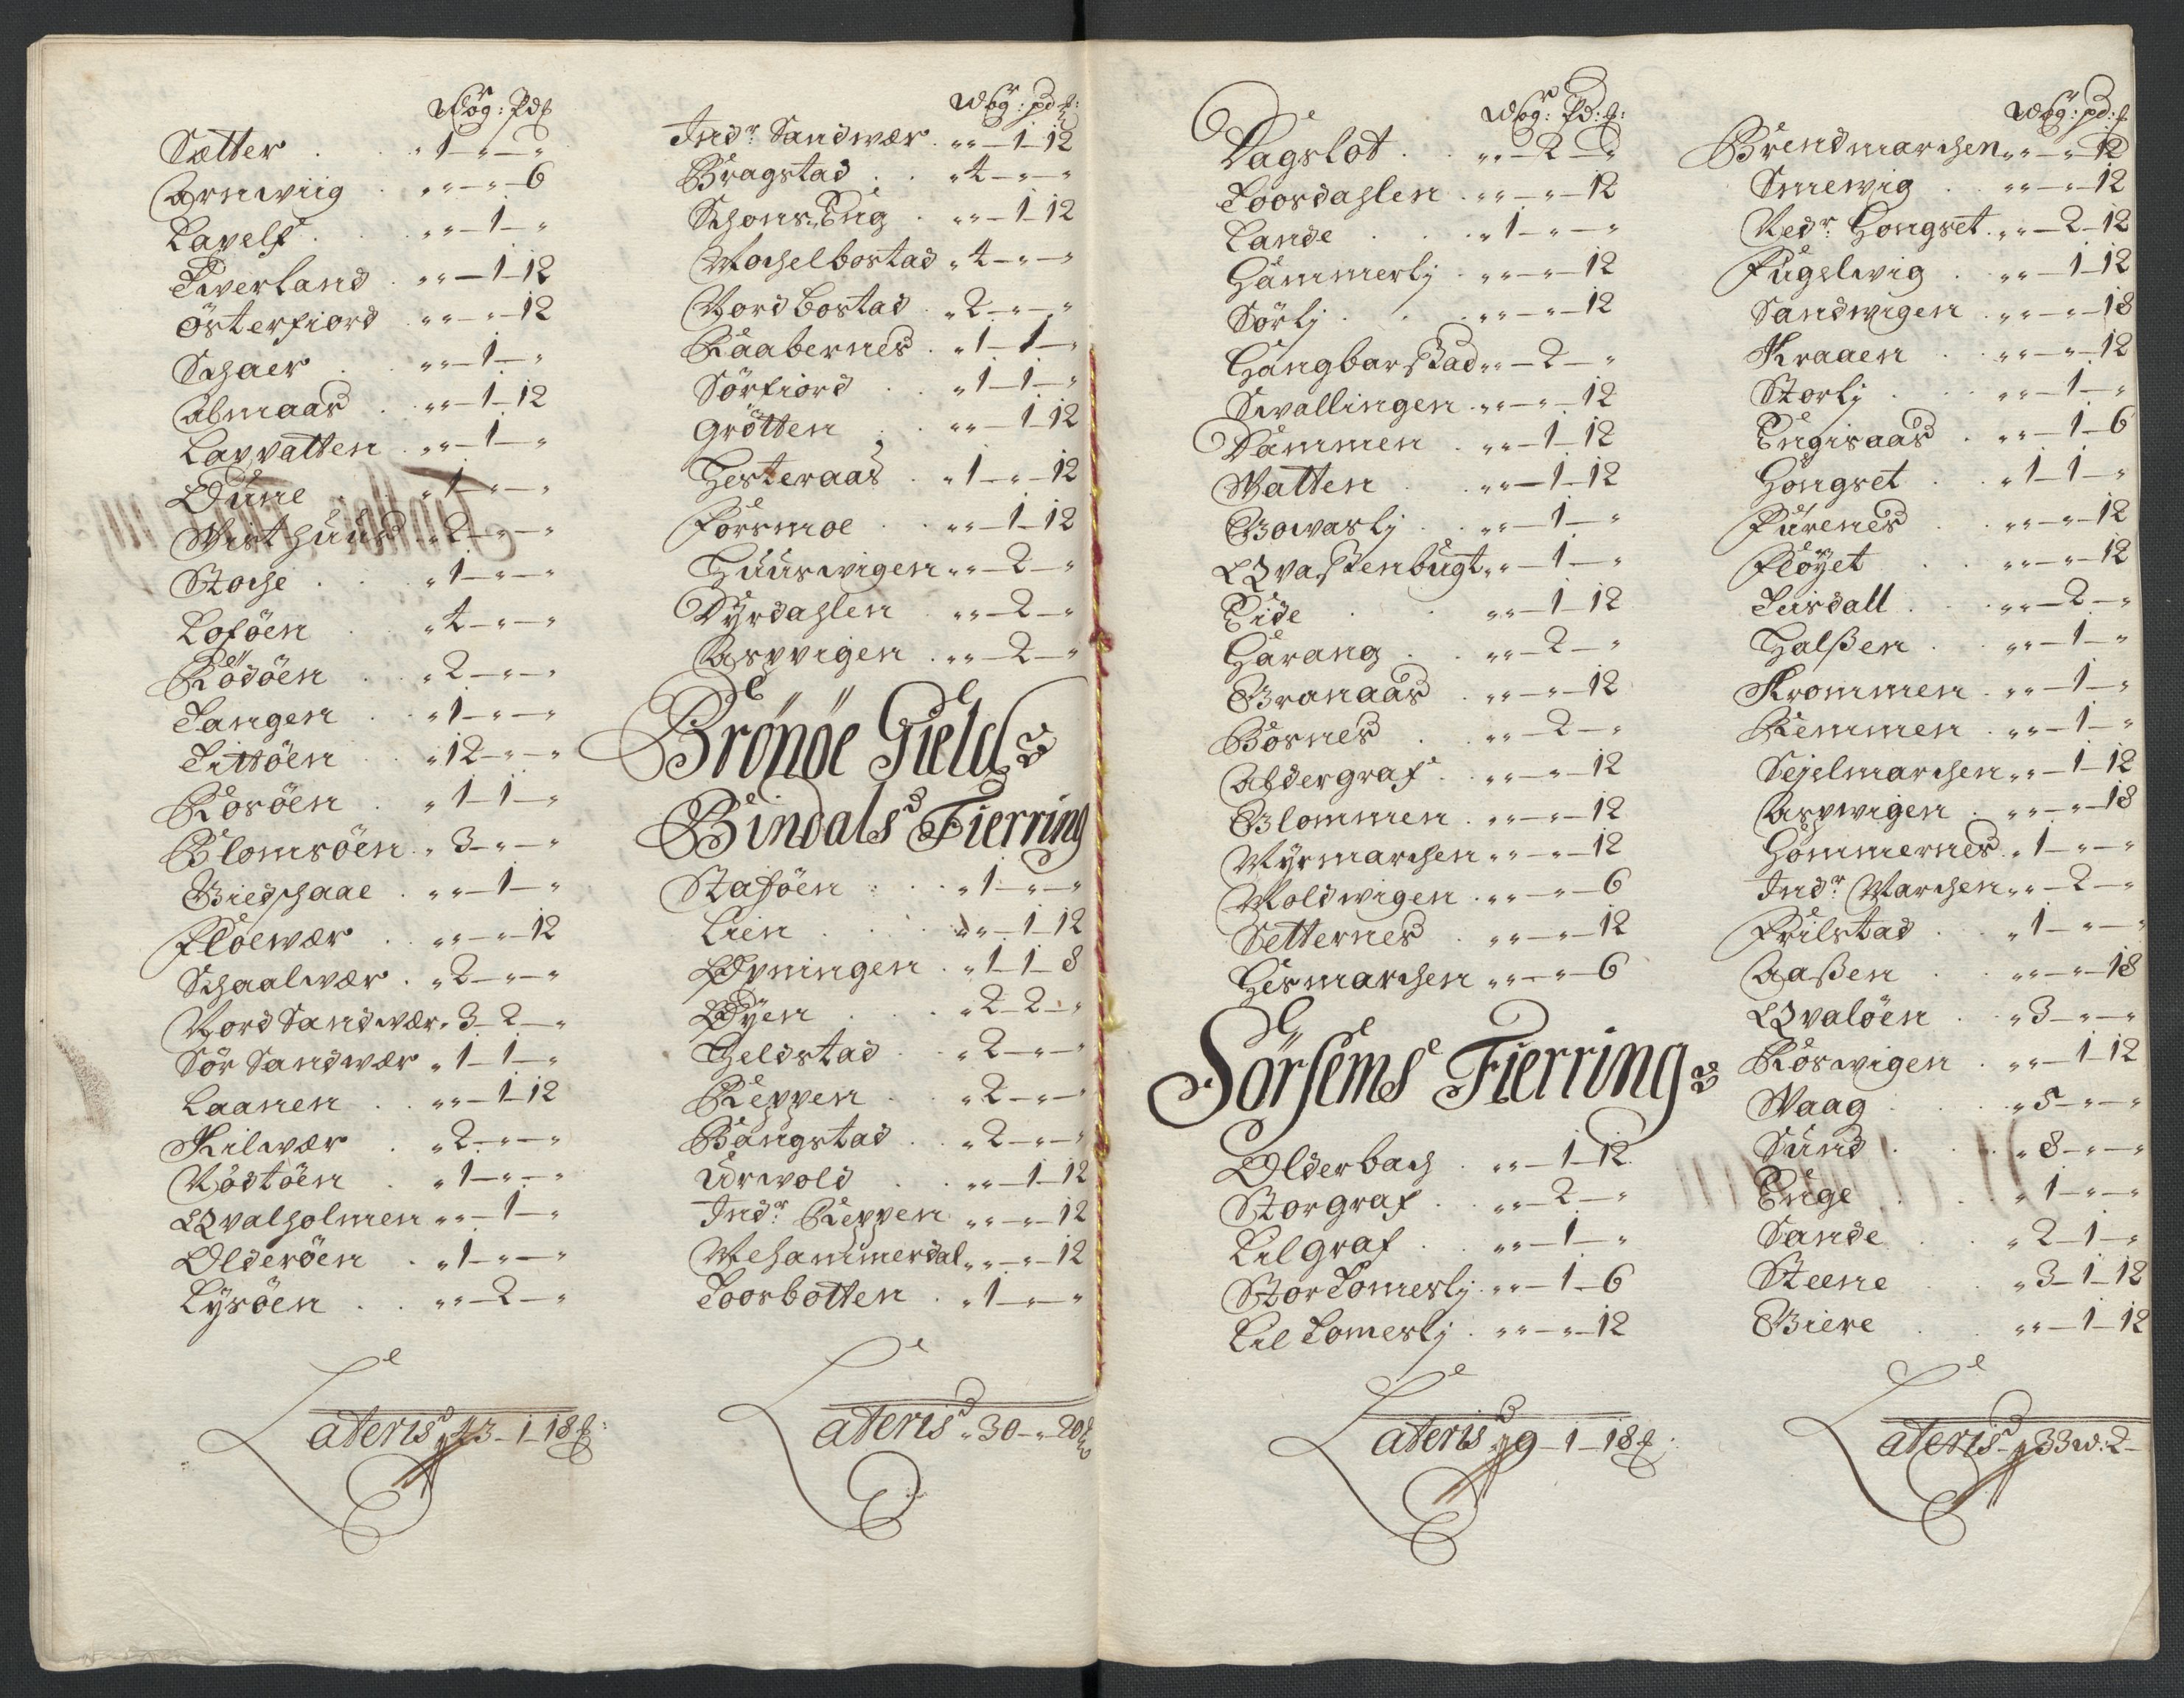 Wog: Pd
Sætter . „1-„-„
Arnwiig . „„-„-6
Lavelf . „„-1-„
Tverland . „„-1-12
Österfiord „„-„-12
Schaer . „„-1-„
Almaas . „„-1-12
Lapvatten . „„-1-„
Dune . „1-„-„
Westhuus „2-„-„
Stoche . „1-„-„
Loföen . „4-„-„
Rödöen . „2-„-„
Tangen . „1-„-„
Tittöen . „12-„-„
Rosöen . „1-1-„
Blomsöen . „3-„-„
Biedschaae . „„-1-„
Flöewær . „„-„-12
Schaalwær . „2-„-„
Nord Sandwær „3-2-„
Sör Sandwær „1-1-„
Laanen . „„-1-12
Kilwær . „2-„-„
Nödtöen . „1-„-„
Qvalholmen „„-1-„
Olderöen . „1-„-„
Lysöen . „„-2-„
Lateris 43-1-18

Wog: pd
Indr Sandwær . „„-1-12
Bragstad . „4-„-„
SchonsEng . „„-1-12
Mochelbostad „4-„-„
Nordbostad . „2-„-„
Raabernes . „1-1-„
Sörfiord . „1-1-„
Grötten . „„-1-12
Hesteraas . „1-„-12
Forsmoe . „„-1-12
Huuswigen „„-2-„
Dyrdahlen „„-2-„
Aspvigen . „„-2-„
Brönöe Gield
Bindals Fierring
Staföen . „1-„-„
Lien . „„-1-12
Øpningen . „1-1-8
Øyen . „2-2-„
Heldstad . „2-„-„
Reppen . „2-„-„
Bangstad . „2-„-„
Urwold . „„-1-12
Indr Reppen „„-„-12
Wehammerdal „„-„-12
Toosbotten . „1-„-„
Lateris „30-„-20

Wog: Pd:
Dagslot . „„-2-„
Toosdahlen . „„-„-12
Lande . „1-„-„
Hammerlj . „„-„-12
Sörlj . „„-„-12
Hangbarstad „„-2-„
Swallingen „„-„-12
Dammen . „„-1-12
Watten . „„-1-12
Bowaslj . „„-1-„
Qvastenbugt „„-1-„
Eide . „„-1-12
Harang . „„-2-„
Granaas . „„-„-12
Bosnes . „„-2-„
Aldergraf . „„-„-12
Blommen . „„-„-12
Myrmarchen „„-„-12
Moldwigen . „„-„-6
Setternes . „„-„-12
Hesmarchen „„-„-6
Sörsems Fierring
Olderbach . „„-1-12
Storgraf . „„-2-„
Lilgraf . „„-1-„
Stortomeslj „„-1-6
Lil Tomeslj . „„-„-12
Lateris 19-1-18

Wog: pd:
Brendmarchen „„-„-12
Smewig . „„-„-12
Nedr Hongset „„-2-12
Fugelwig . „„-1-12
Sandwigen „„-„-18
Kraaen . „„-„-12
Storlj . „„-1-„
Engisaas . „„-1-6
Hongset . „1-1-„
Furenes . „„-„-12
Flöyet . „„-„-12
Teisdall . „„-2-„
Halßen . „„-1-„
Krommen . „„-1-„
Remmen . „„-1-„
Sejelmarchen „„-1-12
Aspwigen . „„-„-18
Hommernes „1-„-„
Indr Marchen „„-2-„
Frilstad . „1-„-„
Aaßen . „„-„-18
Qvalöen . „3-„-„
Röswigen . „„-1-12
Waag . „5-„-„
Sund . „8-„-„
Enge . „1-„-„
Sande . „2-1-„
Steene . „3-1-12
Biere . „„-1-12
Lateris 33 w: 2-